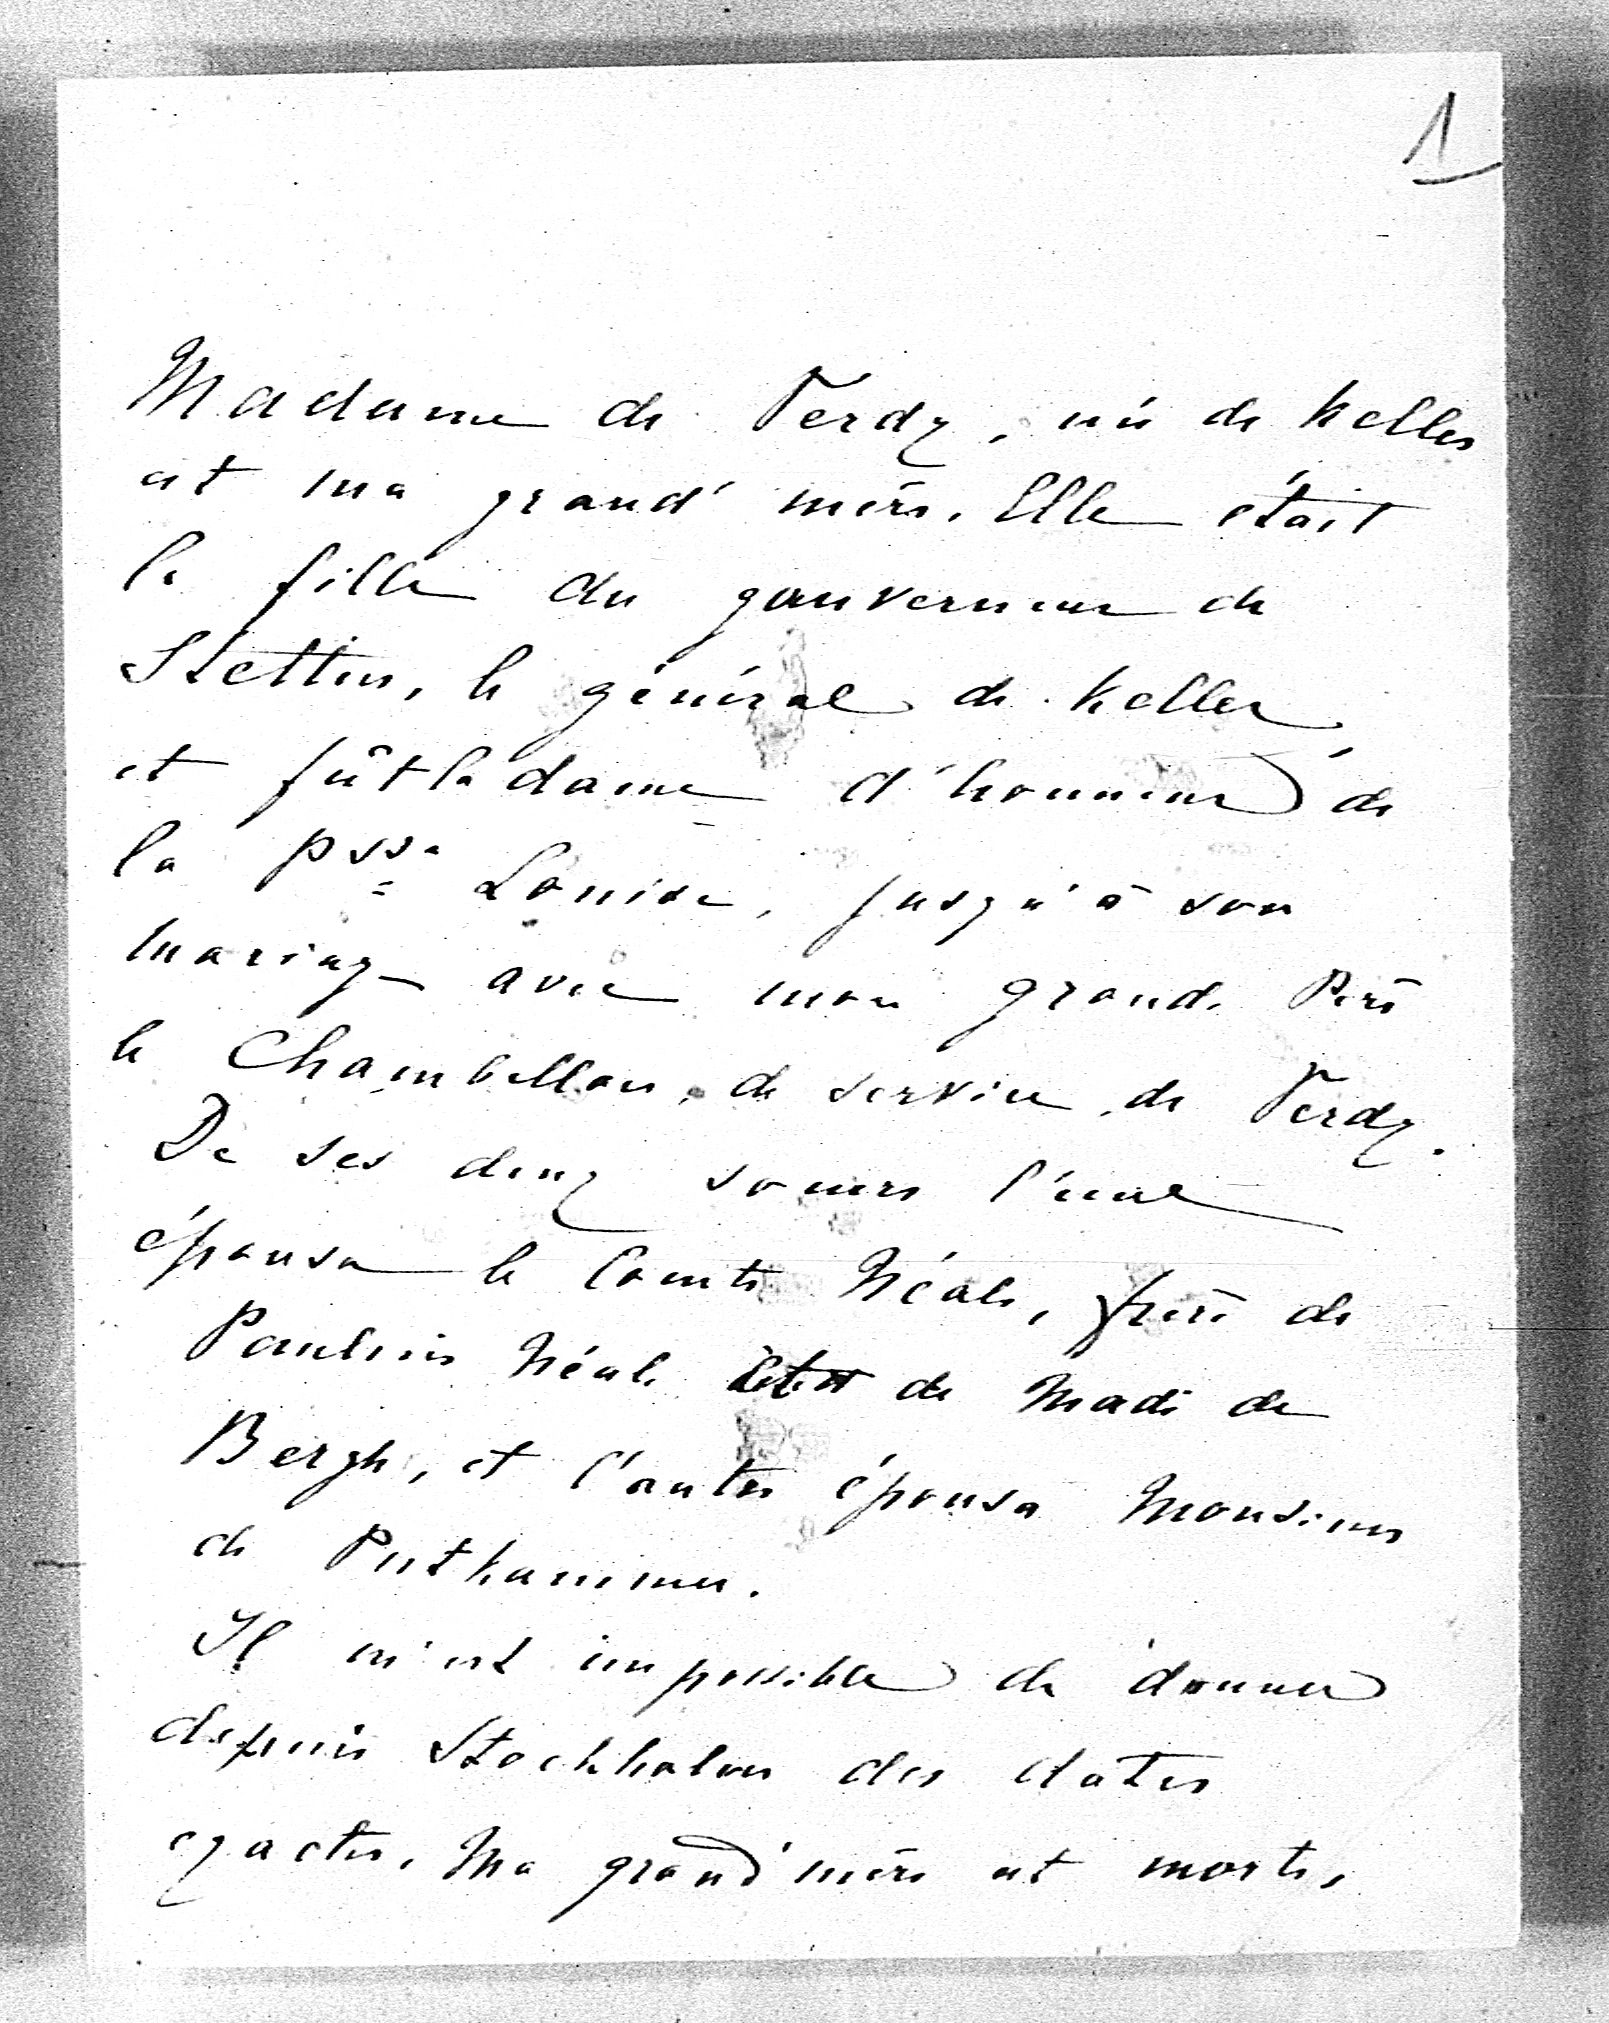 1
Madame de Verdy, née de Keller
est ma grand' mère. Elle était
la fille du gouverneur de
Stettin, le général de Keller,
et fût la dame d'honneur de
la Psse Louise, jusqu'à son
mariage avec mon grand. Père
le Chambellan, de service, de Verdy.
De ses deux soeurs l'une
épousa le Comte Néale, frère de
Pauline Néale et de Made de
Bergh, et l'autre épousa Monsieur
de Puttkammer.
Il m'est impossible de donner
depuis Stockholm des dates
exactes. Ma grand'mère est morte,